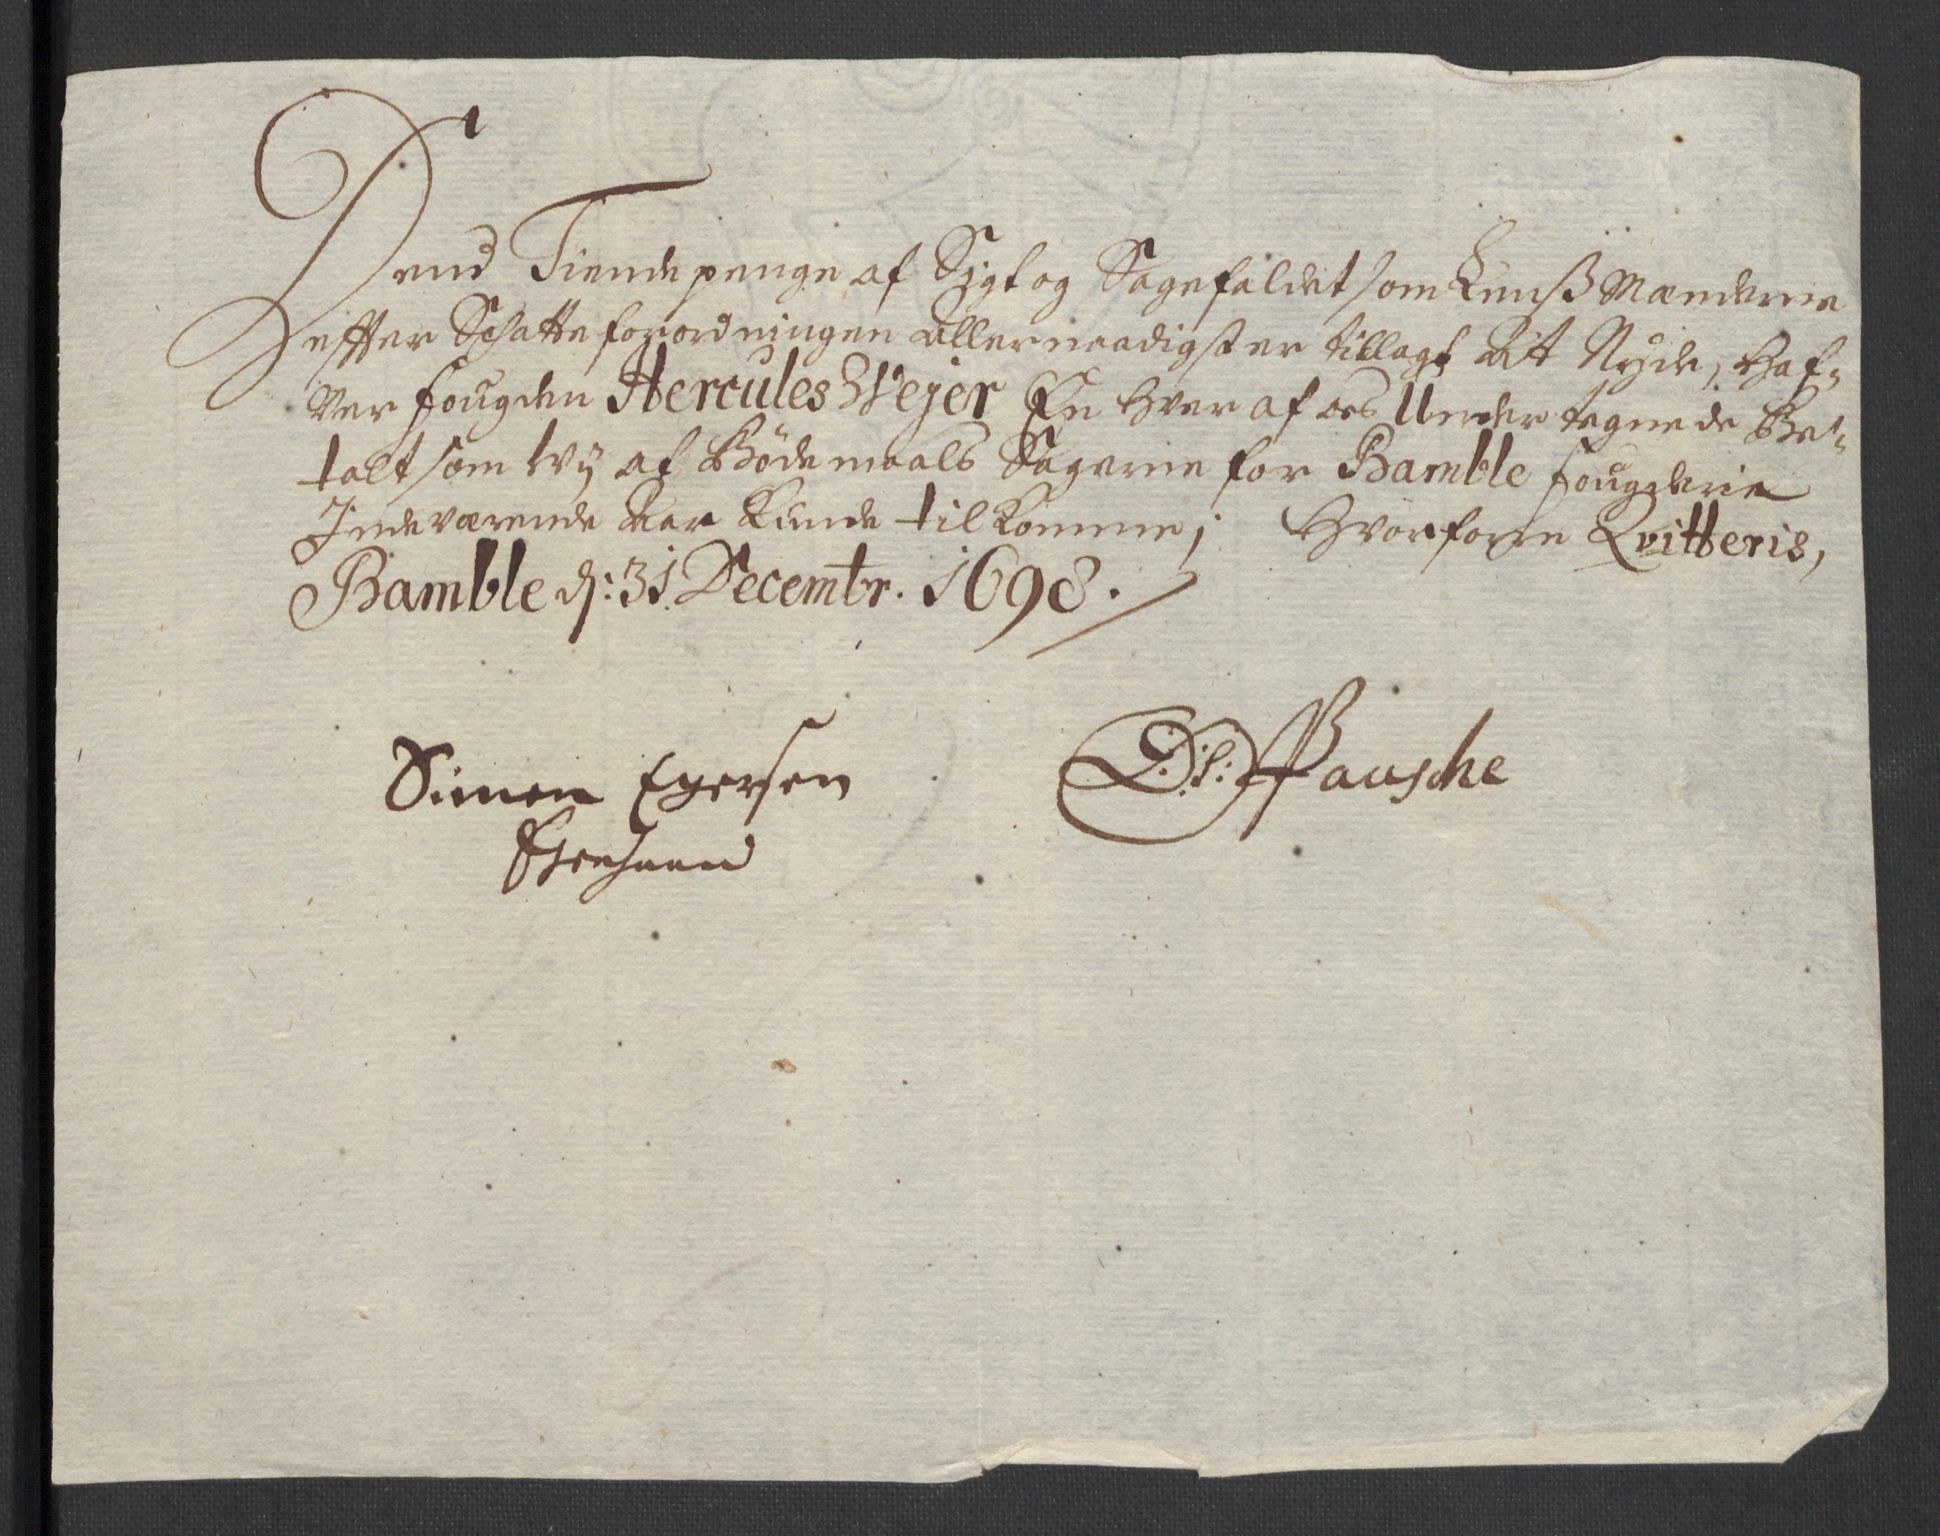 Dend Tiende penge af Sigt og Sagefaldet som Lenß Mænderne
effter Schatte forordningen allernaadigst er tillagt at Nyde, haf-
Ver fougden Hercules Wejer En hver af os Under tegnede Be-
talt som wij af Bøde maals Sagerne for Bamble fougderie
Indeværende Aar Kunde tilkomme; Hvorforre Qvitteris,
Bamble d: 31 Decembr. 1698.
Simen Egersen
Pausche